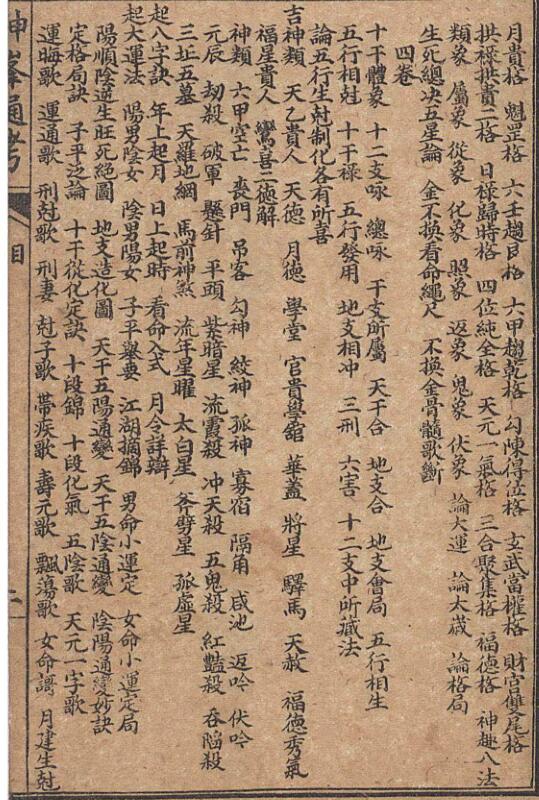 月貴格 魁罡格 六壬趨艮格 六甲趨乾格 勾陳得位格 玄武當權格 財官雙尾格
拱祿拱貴二格 日祿歸時格 四位純全格 天元一氣格 三合聚集格 福德格 神趣八法
類象 屬象 從象 化象 照象 返象 鬼象 伏象 論大運 論太歲 論格局
生死總決五星論 金不換看命繩尺 不換金骨髓歌斷
四卷
十干體象 十二支咏 總咏 干支所屬 天干合 地支合 地支會局 五行相生
五行相尅 十干祿 五行發用 地支相冲 三刑 六害 十二支中所藏法
論五行生尅制化各有所喜
吉神類 天乙貴人 天德 月德 學堂 官貴學舘 華蓋 將星 驛馬 天赦 福德秀氣
福星貴人 鸞喜二德解
神類 六甲空亡 喪門 吊客 勾神 絞神 孤神 寡宿 隔角 咸池 返吟 伏吟
元辰 刼殺 破軍 懸針 平頭 紫暗星 流霞殺 冲天殺 五鬼殺 紅豔殺 吞陷殺
三坵五墓 天羅地綱 馬前神煞 流年星曜 太白星 斧劈星 孤虛星
起八字訣 年上起月 日上起時 看命入式 月令詳辯
起大運法 陽男陰女 陰男陽女 子平舉要 江湖摘錦 男命小運定 女命小運定局
陽順陰逆生旺死絕圖 地支造化圖 天干五陽通變 天干五陰通變 陰陽通變妙訣
定格局訣 子平泛論 十干從化定訣 十段錦 十段化氣 五陰歌 天元一字歌
運晦歌 運通歌 刑尅歌 刑妻 尅子歌 帶疾歌 壽元歌 飄蕩歌 女命謌 月建生尅
神峯通考
目
二